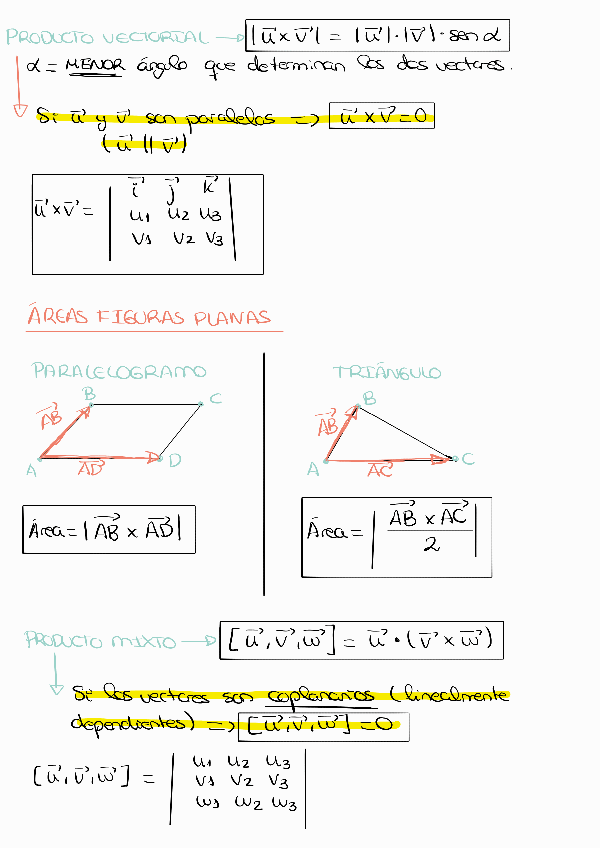 PRODUCTO VECTORIAL → |u⃗ x v⃗| = |u⃗|·|v⃗|· sen α
α = MENOR ángulo que determinan los dos vectores.
Si u⃗ y v⃗ son paralelos => u⃗ x v⃗ = 0
(u⃗ || v⃗)
i⃗ j⃗ k⃗
u⃗ x v⃗ = | u1 u2 u3 |
v1 v2 v3
ÁREAS FIGURAS PLANAS
PARALELOGRAMO
B C
AB⃗
A AD⃗ D
Área = |AB⃗ x AD⃗|
TRIÁNGULO
B
AB⃗
A AC⃗ C
Área = | AB⃗ x AC⃗ |
2
PRODUCTO MIXTO → [u⃗, v⃗, w⃗] = u⃗ • (v⃗ x w⃗)
Si los vectores son coplanarios (linealmente
dependientes) => [u⃗, v⃗, w⃗] = 0
u1 u2 u3
[u⃗, v⃗, w⃗] = | v1 v2 v3 |
w1 w2 w3